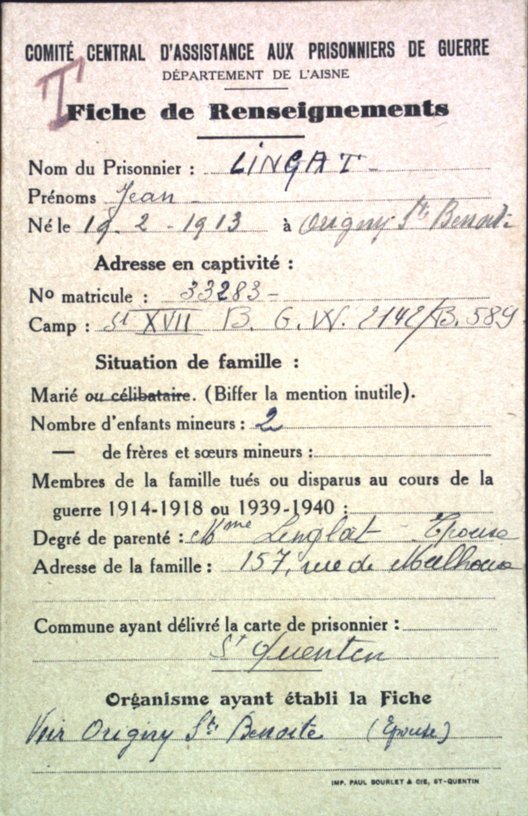 COMITÉ CENTRAL D'ASSISTANCE AUX PRISONNIERS DE GUERRE
DÉPARTEMENT DE L'AISNE
I
Fiche de Renseignements
Nom du Prisonnier : LINGAT -
Prénoms Jean -
Né le 19. 2 - 1913 à Origny Ste Benoite
Adresse en captivité :
No matricule : 33283 -
Camp : St XVII B. G.W. 2142/B.589
Situation de famille :
Marié ou célibataire. (Biffer la mention inutile).
Nombre d'enfants mineurs : 2
— de frères et sœurs mineurs :
Membres de la famille tués ou disparus au cours de la
guerre 1914-1918 ou 1939-1940 :
Degré de parenté : Mme Epouse
Adresse de la famille : 157, rue de Mulhouse
Commune ayant délivré la carte de prisonnier :
St Quentin
Organisme ayant établi la Fiche
Voir Origny Ste Benoite (Epouse)
IMP. PAUL BOURLET & CIE, ST-QUENTIN